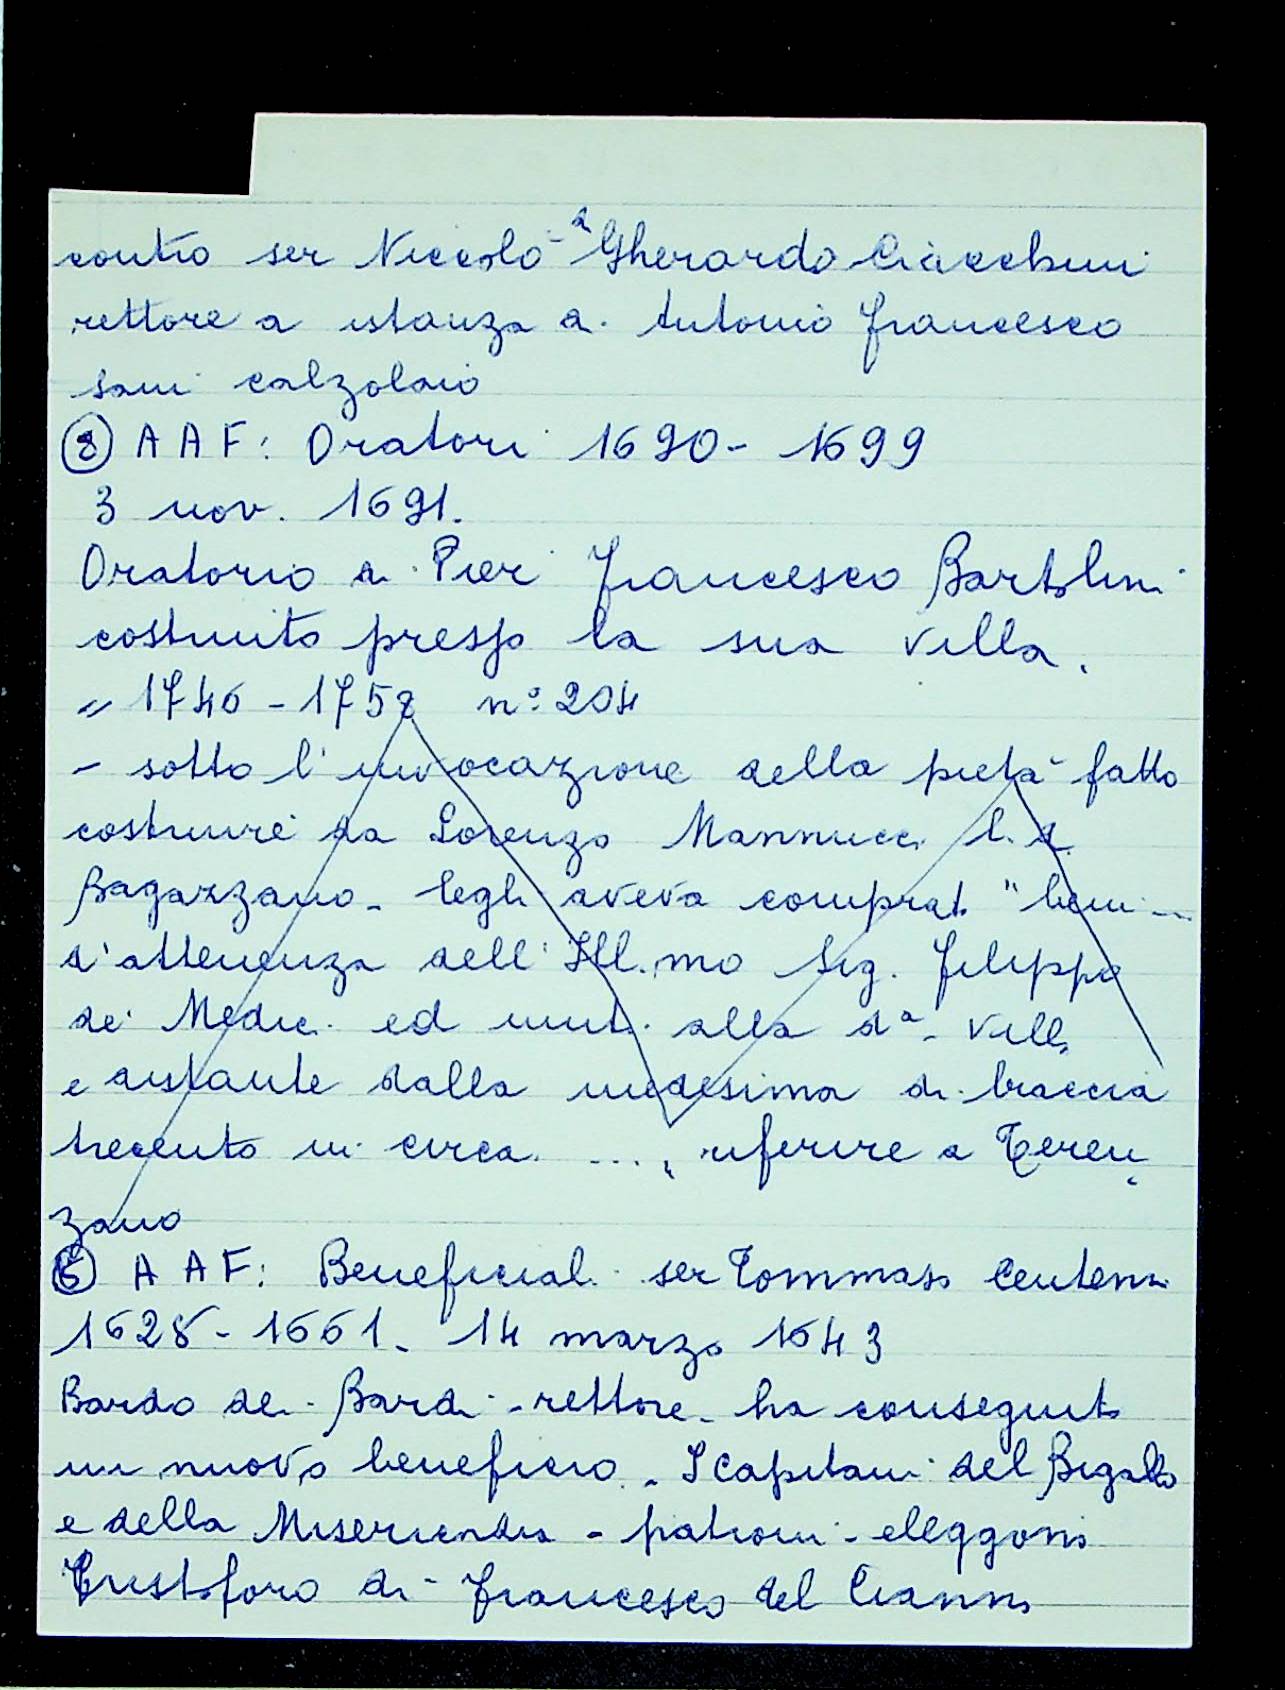 contro ser Niccolò di Gherardo Ciacchini
rettore a istanza di Antonio Francesco
Sani calzolaio
⑧ A A F: Oratori 1690- 1699
3 nov. 1691.
Oratorio di Pier Francesco Bartolini
costruito presso la sua villa.
" 1746 - 1758 n° 204
- sotto l'invocazione della pietà fatto
costruire da Lorenzo Mannucci l. d.
Bagazzano - Egli aveva comprati "beni ...
d'attenenza dell'Ill.mo Sig. Filippo
de' Medici ed uniti alla dª villa
e distante dalla medesima di braccia
trecento in circa ...„ riferire a Teren
zano
⑥ A A F: Beneficiali ser Tommaso Centeni
1628 - 1661. 14 marzo 1643
Bardo dei Bardi - rettore - ha conseguito
un nuovo beneficio. I capitani del Bigallo
e della Misericordia - patroni - eleggono
Cristoforo di Francesco del